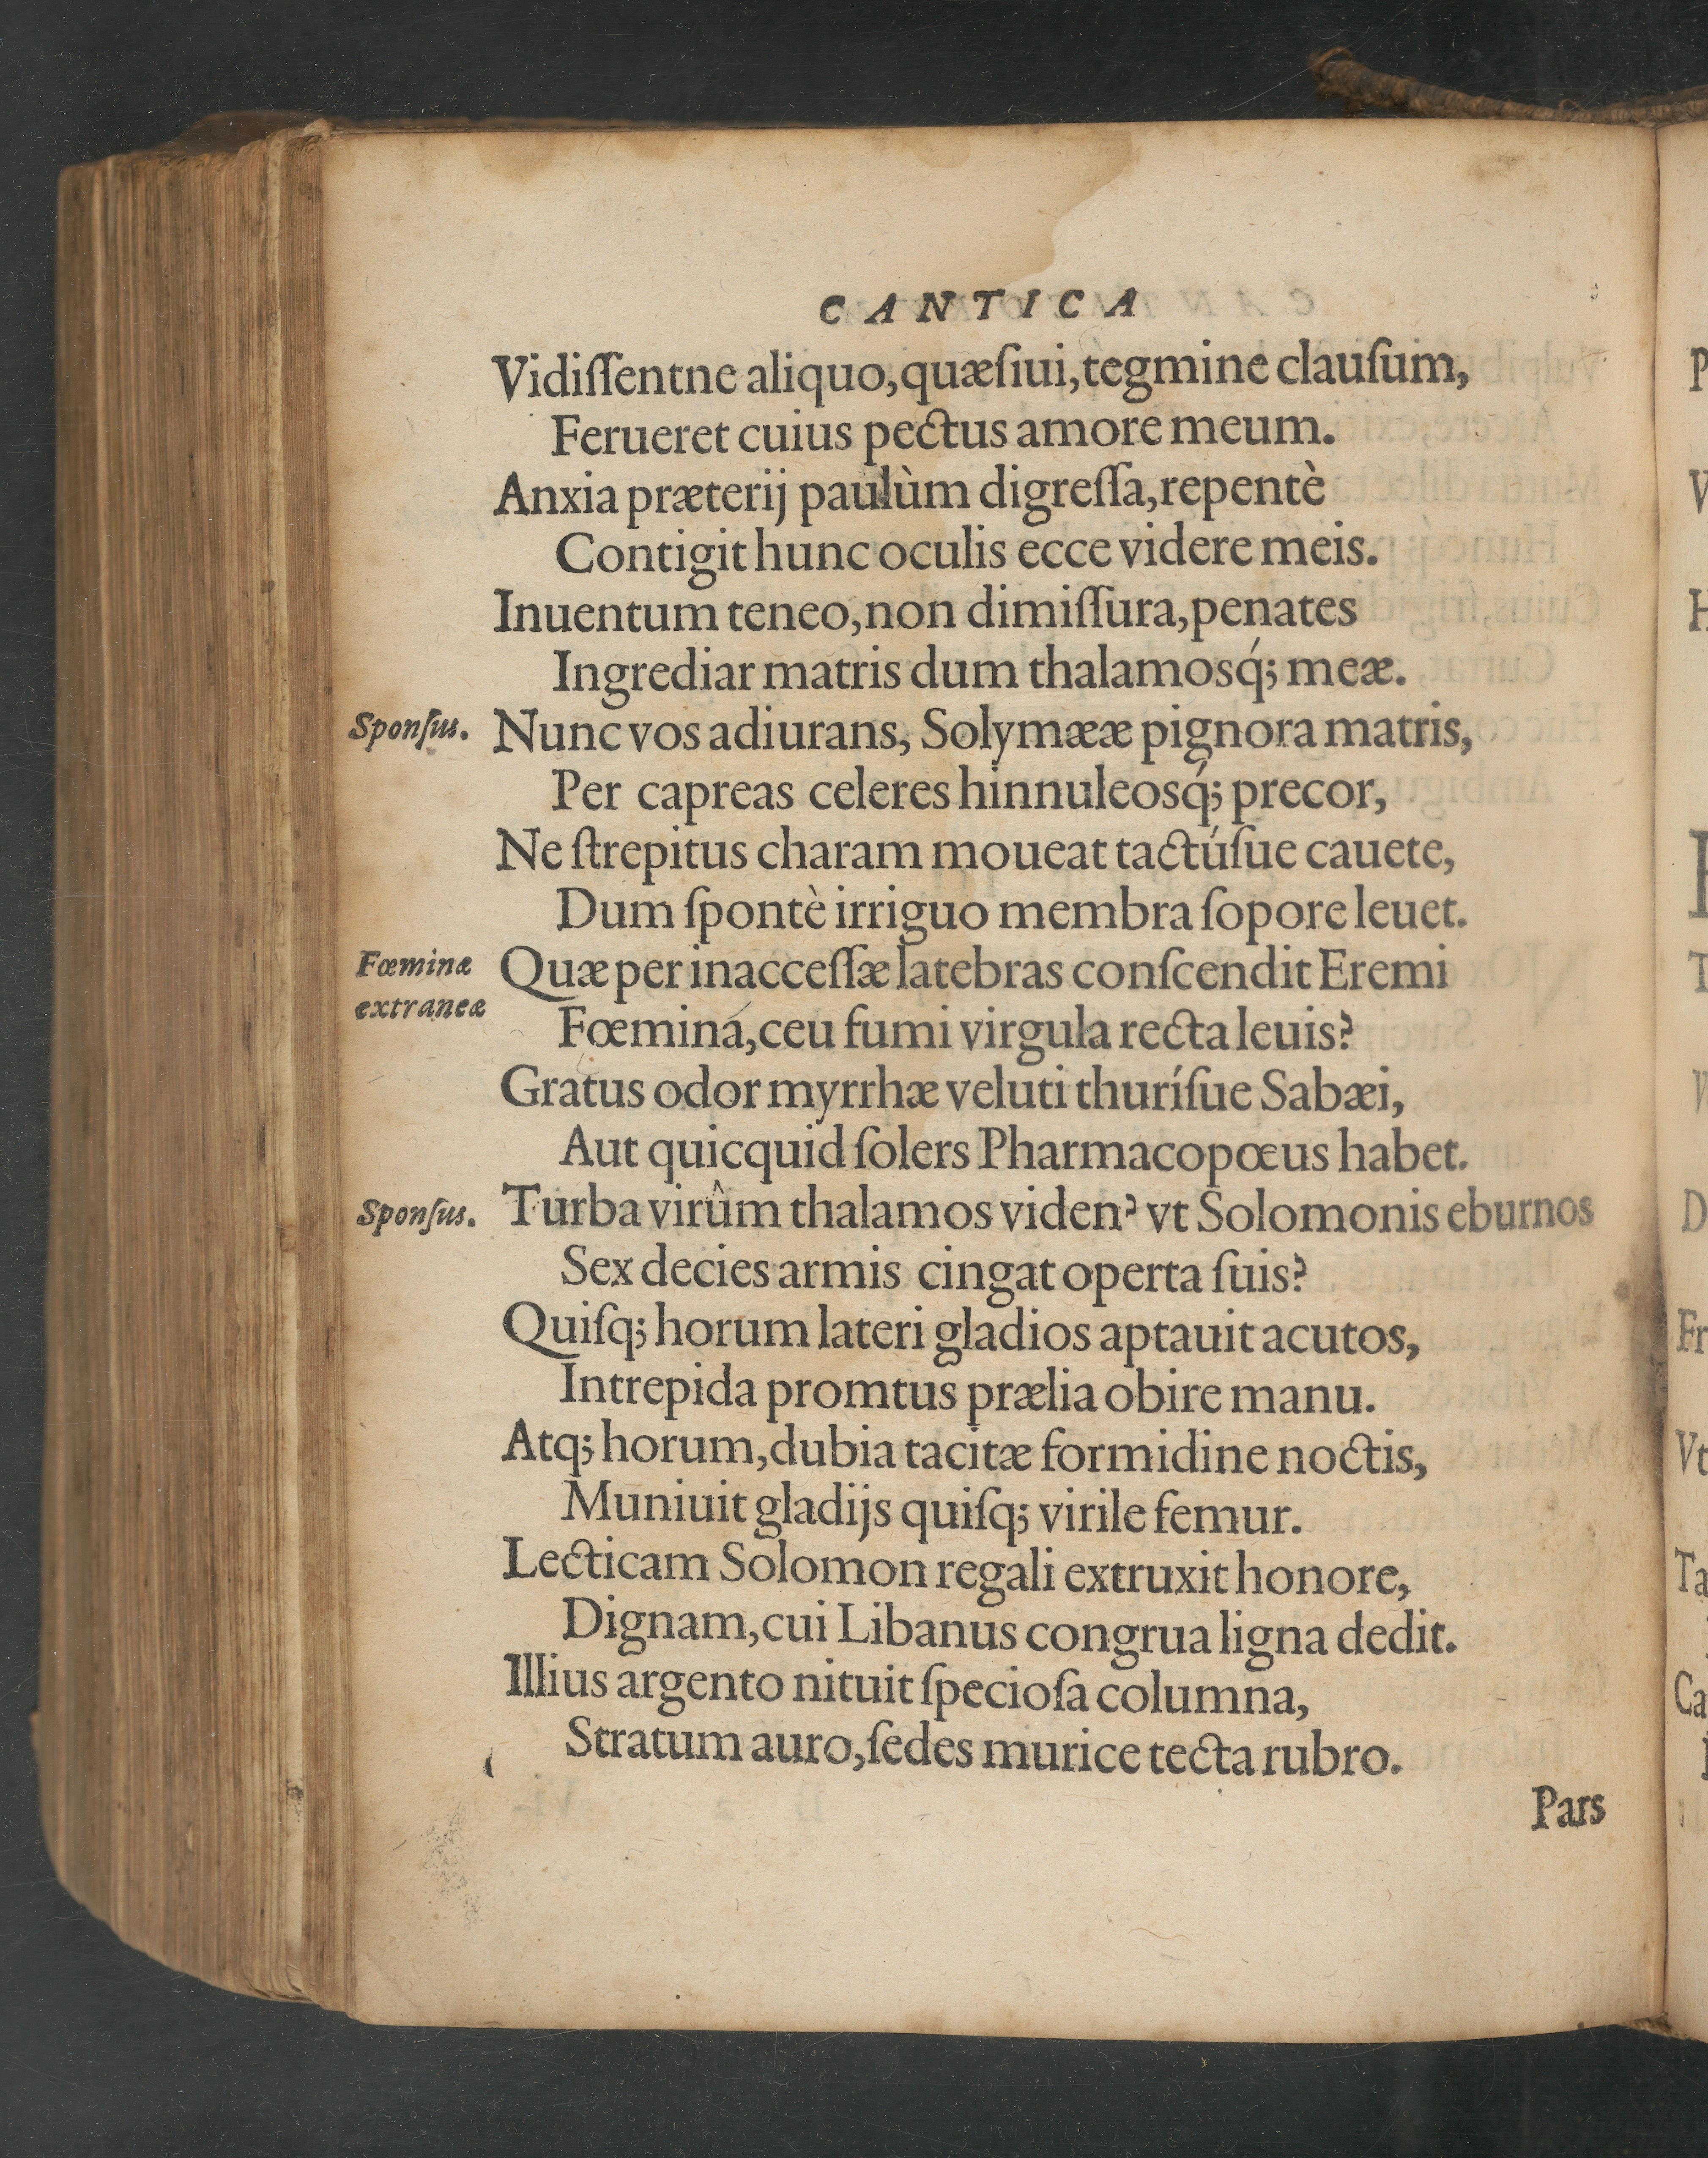 CANTICA
Vidiſſentne aliquo, quæſiui, tegmine clauſum,
Ferueret cuius pectus amore meum.
Anxia præterij paulùm digreſſa, repentè
Contigit hunc oculis ecce videre meis.
Inuentum teneo, non dimiſſura, penates
Ingrediar matris dum thalamosq́; meæ.
Sponſus. Nunc vos adiurans, Solymææ pignora matris,
Per capreas celeres hinnuleosq́; precor,
Ne ſtrepitus charam moueat tactúſue cauete,
Dum ſpontè irriguo membra ſopore leuet.
Fœminæ Quæ per inacceſſæ latebras conſcendit Eremi
extraneæ
Fœmina, ceu fumi virgula recta leuis?
Gratus odor myrrhæ veluti thuríſue Sabæi,
Aut quicquid ſolers Pharmacopœus habet.
Sponſus. Turba virûm thalamos viden? vt Solomonis eburnos
Sex decies armis cingat operta ſuis?
Quiſq; horum lateri gladios aptauit acutos,
Intrepida promtus prælia obire manu.
Atq; horum, dubia tacitæ formidine noctis,
Muniuit gladijs quiſq; virile femur.
Lecticam Solomon regali extruxit honore,
Dignam, cui Libanus congrua ligna dedit.
Illius argento nituit ſpecioſa columna,
Stratum auro, ſedes murice tecta rubro.
Pars